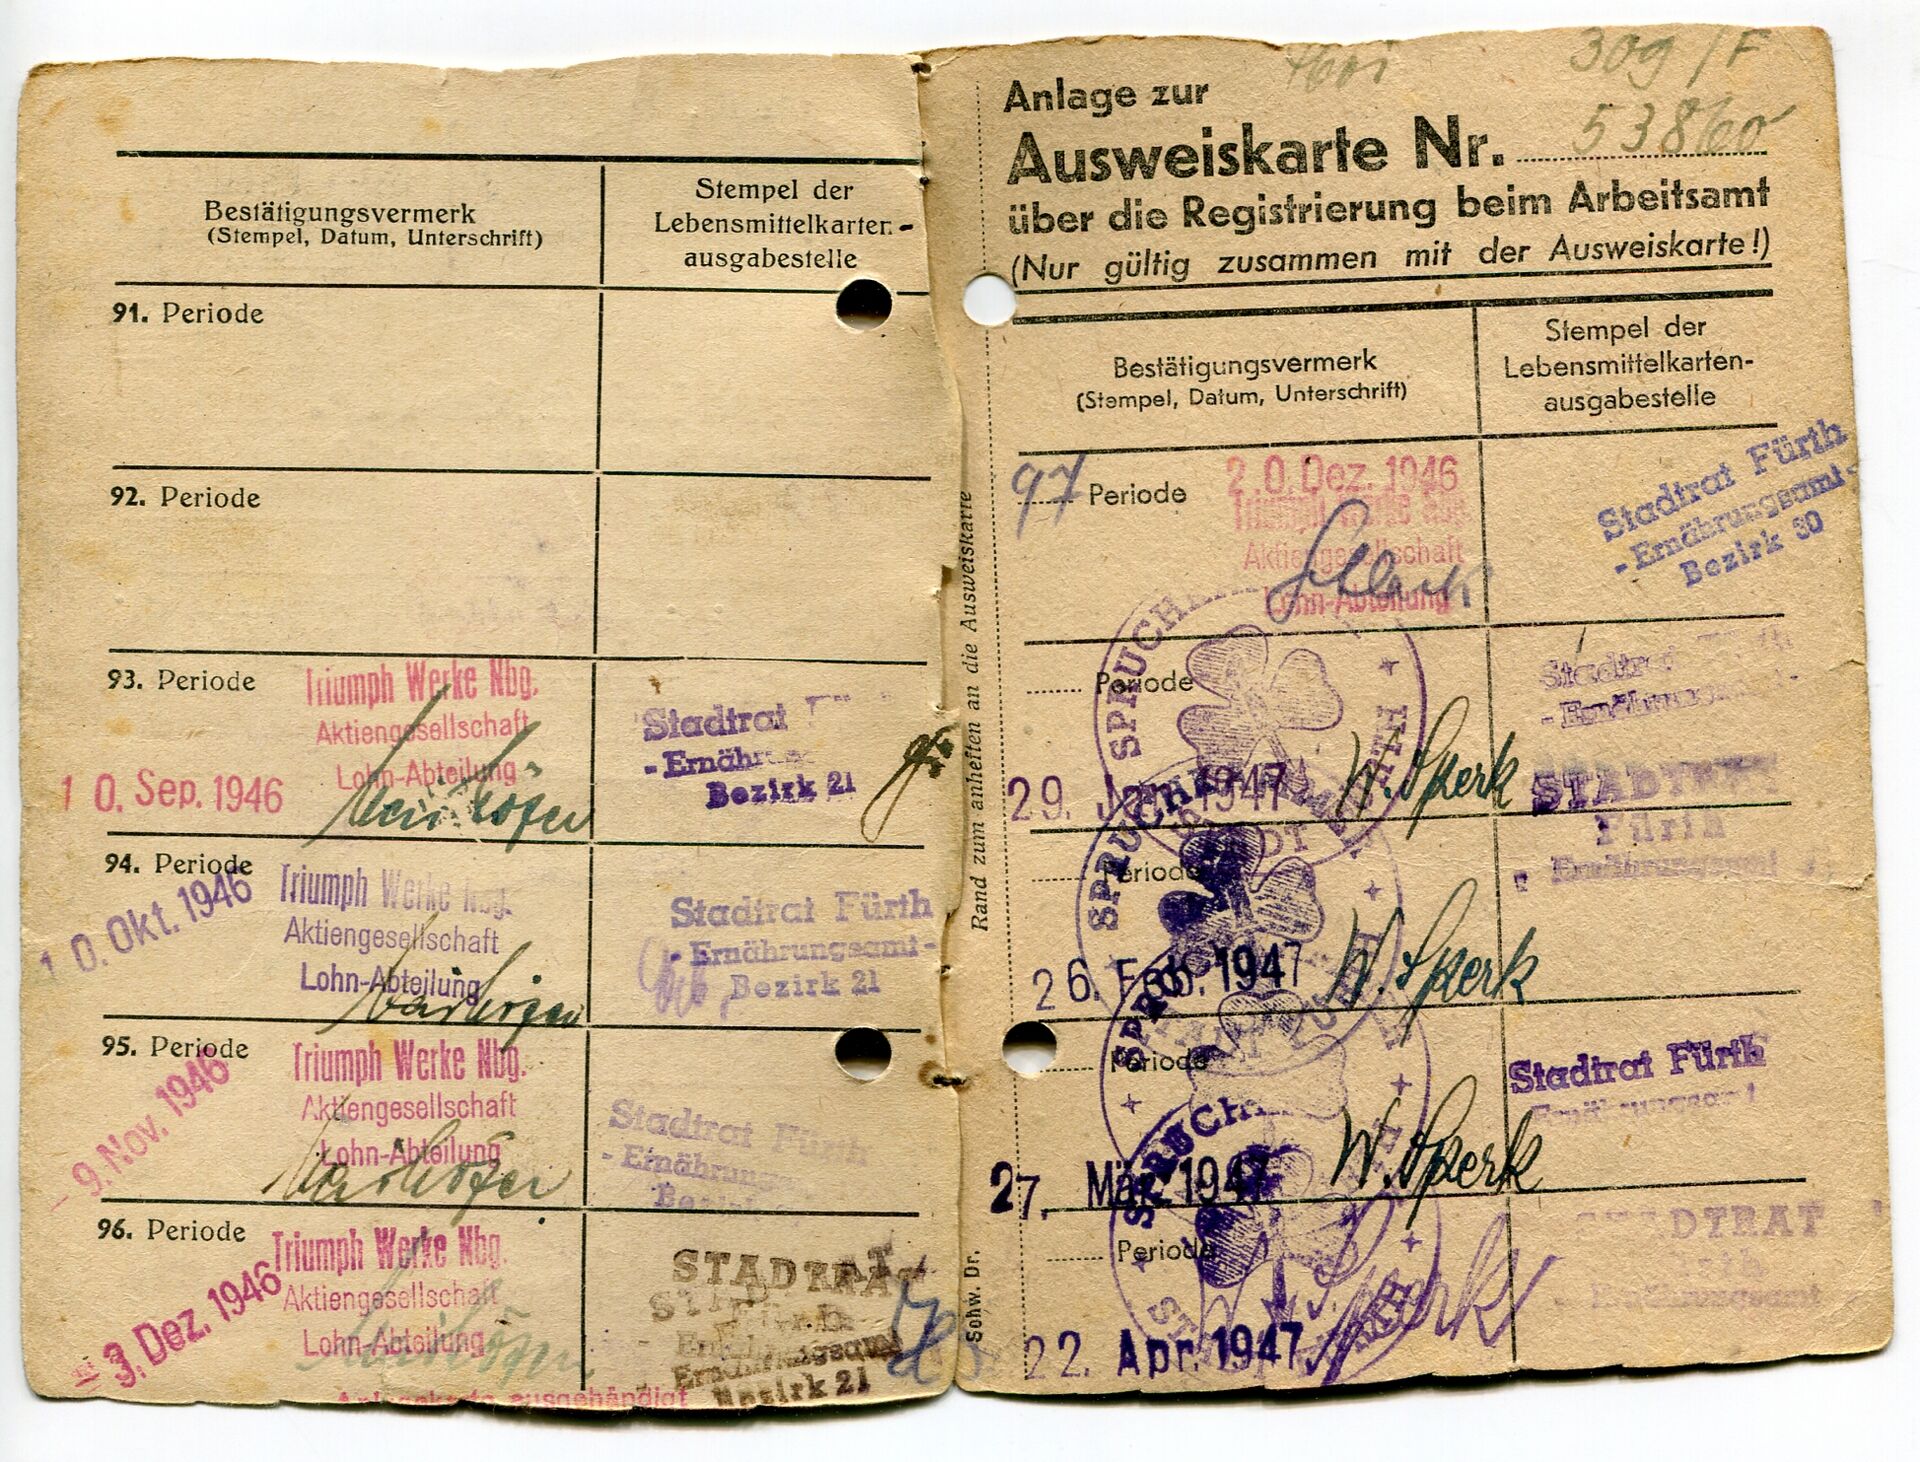 Bestätigungsvermerk
(Stempel, Datum, Unterschrift)
Stempel der
Lebensmittelkarten-
ausgabestelle
91. Periode
92. Periode
93. Periode
Triumph Werke Nbg.
Aktiengesellschaft
Lohn-Abteilung
10. Sep. 1946
Stadtrat
- Ernähr
Bezirk 21
94. Periode
10. Okt. 1946
Triumph Werke Nbg.
Aktiengesellschaft
Lohn-Abteilung
Stadtrat Fürth
- Ernährungsamt -
Bezirk 21
95. Periode
- 9. Nov. 1946
Triumph Werke Nbg.
Aktiengesellschaft
Lohn-Abteilung
Stadtrat Fürth
- Ernährungs
Bezirk
96. Periode
3. Dez. 1946
Triumph Werke Nbg.
Aktiengesellschaft
Lohn-Abteilung
STADTRAT
Fürth
Ernährungsamt
Bezirk 21
ausgehändigt
Rand zum anheften an die Ausweiskarte
Schw. Dr.
309/F
Anlage zur
Ausweiskarte Nr. 53860
über die Registrierung beim Arbeitsamt
(Nur gültig zusammen mit der Ausweiskarte!)
Bestätigungsvermerk
(Stempel, Datum, Unterschrift)
Stempel der
Lebensmittelkarten-
ausgabestelle
97 Periode
20. Dez. 1946
Triumph Werke Nbg.
Aktiengesellschaft
Lohn-Abteilung
Stadtrat Fürth
- Ernährungsamt -
Bezirk 30
Periode
SPRUCHKAMMER
STADT FÜRTH
29. Jan. 1947
W. Sperk
Stadtrat
- Ernährungsamt -
STADTRAT
Fürth
Ernährungsamt
Periode
SPRUCHKAMMER
26. Feb. 1947
W. Sperk
Periode
27. März 1947
W. Sperk
Stadtrat Fürth
Ernährungsamt
Periode
22. Apr. 1947
W. Sperk
STADTRAT
Fürth
- Ernährungsamt -